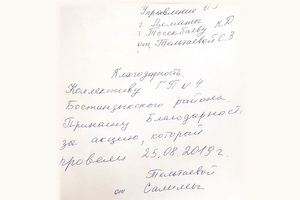 Управление
г. Алматы
г. Тосекбаеву К.Д.
от Тельтаевой С.З
Благодарность.
Коллективу ГП №4
Бостандыкского района.
Приношу Благодарность
за акцию, который
провели 25.08.2019 г.
Тельтаевой
от Салимы